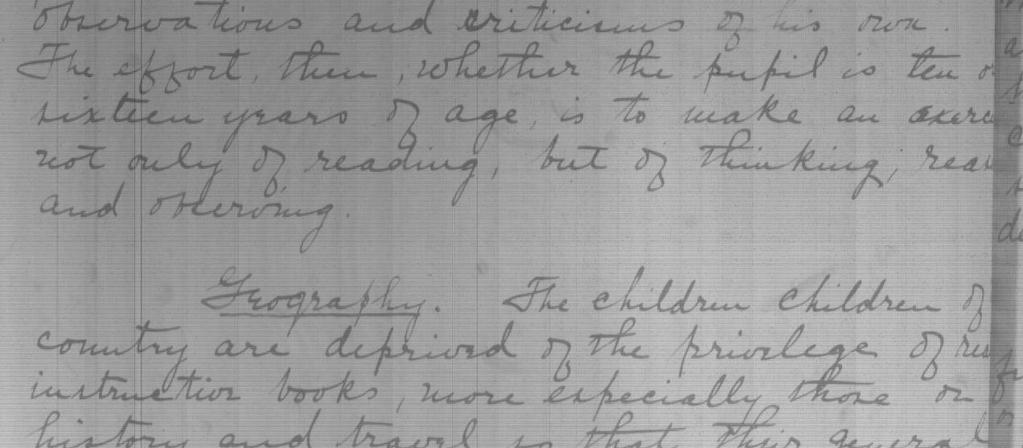 observations and criticisms of his own.
The effort, then, whether the pupil is ten
sixteen years of age, is to make an
not only of reading, but of thinking,
and observing.
Geography. The children children of
country are deprived of the privilege of
instructive books, more especially those on
history and travel so that their general